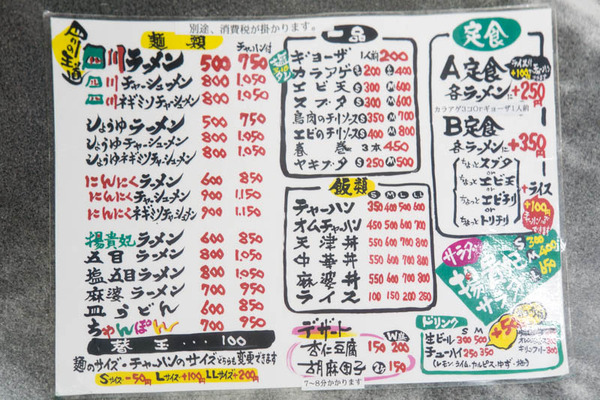 別途、消費税が掛かります。
四川の王道
麺類
チャーハン付
四川ラーメン 500 750
四川チャーシューメン 800 1,050
四川ネギミソチャーシューメン 800 1,050
しょうゆラーメン 500 750
しょうゆチャーシューメン 800 1,050
しょうゆネギミソチャーシューメン 800 1,050
にんにくラーメン 600 850
にんにくチャーシューメン 900 1,150
にんにくネギミソチャーシューメン 900 1,150
楊貴妃ラーメン 600 850
五目ラーメン 800 1,050
塩五目ラーメン 800 1,050
麻婆ラーメン 700 950
皿うどん 600 850
ちゃんぽん 700 950
替玉・・・100
麺のサイズ・チャーハンのサイズどちらも変更できます
Sサイズ-50円 Lサイズ+100円 LLサイズ+200円
一品
ギョーザ 1人前 200
カラアゲ S 200 M 400
エビ天 S 300 M 600
スブタ S 300 M 600
鳥肉のチリソース S 350 M 700
エビのチリソース S 400 M 800
春巻 3本 450
ヤキブタ S 250 M 500
飯類
S M L LL
チャーハン 350 400 500 600
オムチャーハン 450 500 600 700
天津丼 550 600 700 800
中華丼 550 600 700 800
麻婆丼 550 600 700 800
ライス 100 150 200 250
デザート
W盛
杏仁豆腐 150 200
胡麻団子 小 150
7〜8分かかります
定食
A定食
各ラーメンに+250円
カラアゲ3コorギョーザ1人前
B定食
各ラーメンに+350円
ちょっとスブタ
or
ちょっとエビ天
or
ちょっとエビチリ
or
ちょっとトリチリ
+ライス
+100円
サラダ
S 300
M 400
L 650
ドリンク
S M
生ビール 300 500
チューハイ 250 350
(レモン・ライム・カルピス・ゆず・梅)